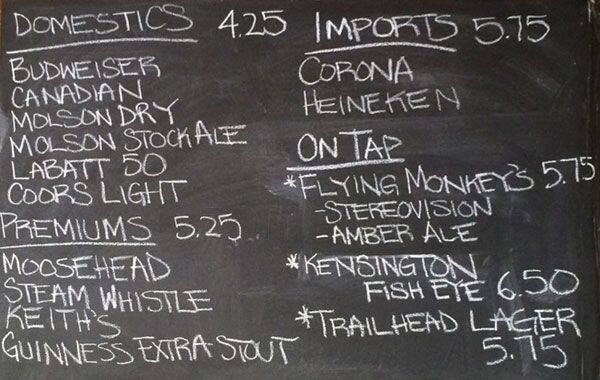 DOMESTICS 4.25
BUDWEISER
CANADIAN
MOLSON DRY
MOLSON STOCK ALE
LABATT 50
COORS LIGHT
PREMIUMS 5.25
MOOSEHEAD
STEAM WHISTLE
KEITH'S
GUINNESS EXTRA STOUT
IMPORTS 5.75
CORONA
HEINEKEN
ON TAP
*FLYING MONKEY'S 5.75
-STEREOVISION
-AMBER ALE
*KENSINGTON
FISH EYE 6.50
*TRAILHEAD LAGER
5.75